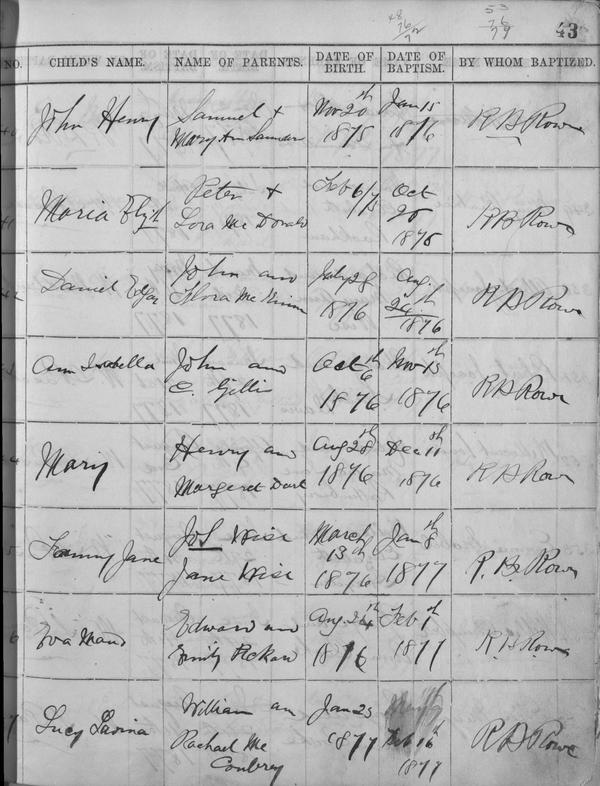 43
NO. CHILD'S NAME. NAME OF PARENTS. DATE OF BIRTH. DATE OF BAPTISM. BY WHOM BAPTIZED.
John Henry
Samuel +
Mary Ann
Nov 20th
1875
Jan 15
1876
R B Rowe
Maria Elizth
Peter +
McDonald
Feb 6/75
Oct
1875
R B Rowe
Daniel Edgar
John and
Flora Mc
July 28
1876
Aug.
24th
1876
R B Rowe
Ann Isabella
John and
C. Gillis
Oct 6th
1876
Nov 13th
1876
R B Rowe
Mary
Henry and
Margaret
Aug 28th
1876
Dec 11th
1876
R B Rowe
Fanny Jane
Jos Wise
Jane Wise
March
13th
1876
Jan 8th
1877
R. B. Rowe
Eva Maud
Edward and
Emily
Aug. 24th
1876
Feb 1st
1877
R B Rowe
Lucy Lavina
William an
Rachael Mc
Conbrey
Jan 23
1877
Feb 16th
1877
R B Rowe